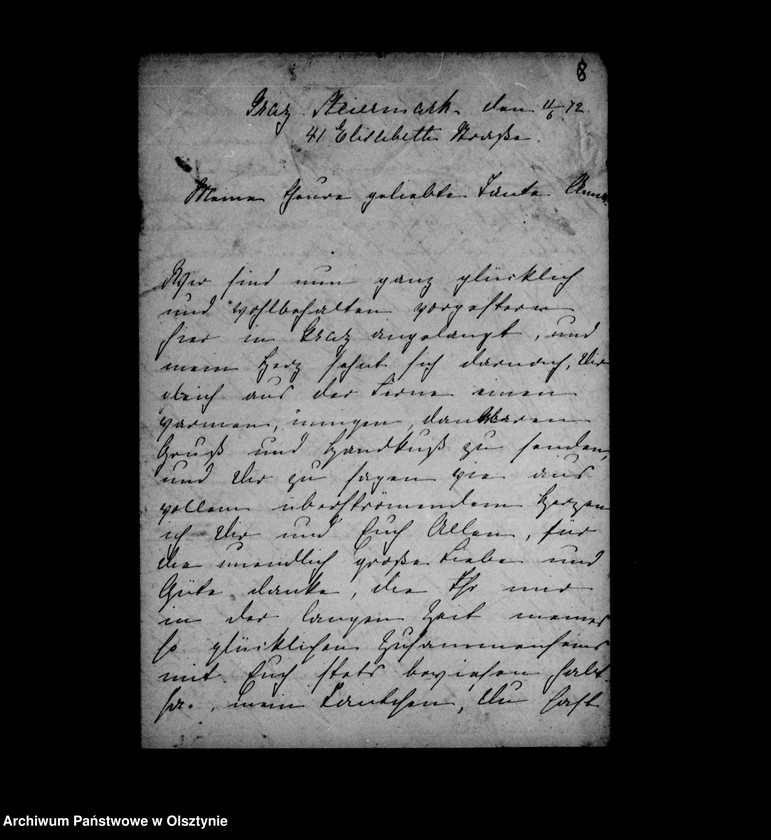 8
Graz Steiermark den 11/6 72
41 Elisabeth Straße.
Meine theure geliebte Tante Anna.
Wir sind nun ganz glücklich
und wohlbehalten vorgestern
hier in Graz angelangt, und
mein Herz sehnt sich darnach, Dir
gleich aus der Ferne einen
warmen, innigen, dankbaren
Gruß und Handkuß zu senden,
und Dir zu sagen wie aus
vollem überströmendem Herzen
ich Dir und Euch Allen, für
die unendlich große Liebe und
Güte danke, die Ihr mir
in der langen Zeit meines
so glücklichen Zusammenseins
mit Euch stets bewiesen habt.
Ja, mein Tantchen, Du hast
Archiwum Państwowe w Olsztynie